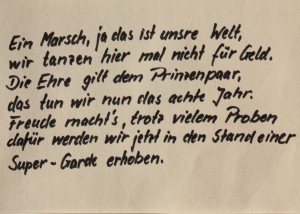 Ein Marsch, ja das ist unsre Welt,
wir tanzen hier mal nicht für Geld.
Die Ehre gilt dem Prinzenpaar,
das tun wir nun das achte Jahr.
Freude macht's, trotz vielem Proben
dafür werden wir jetzt in den Stand einer
Super-Garde erhoben.